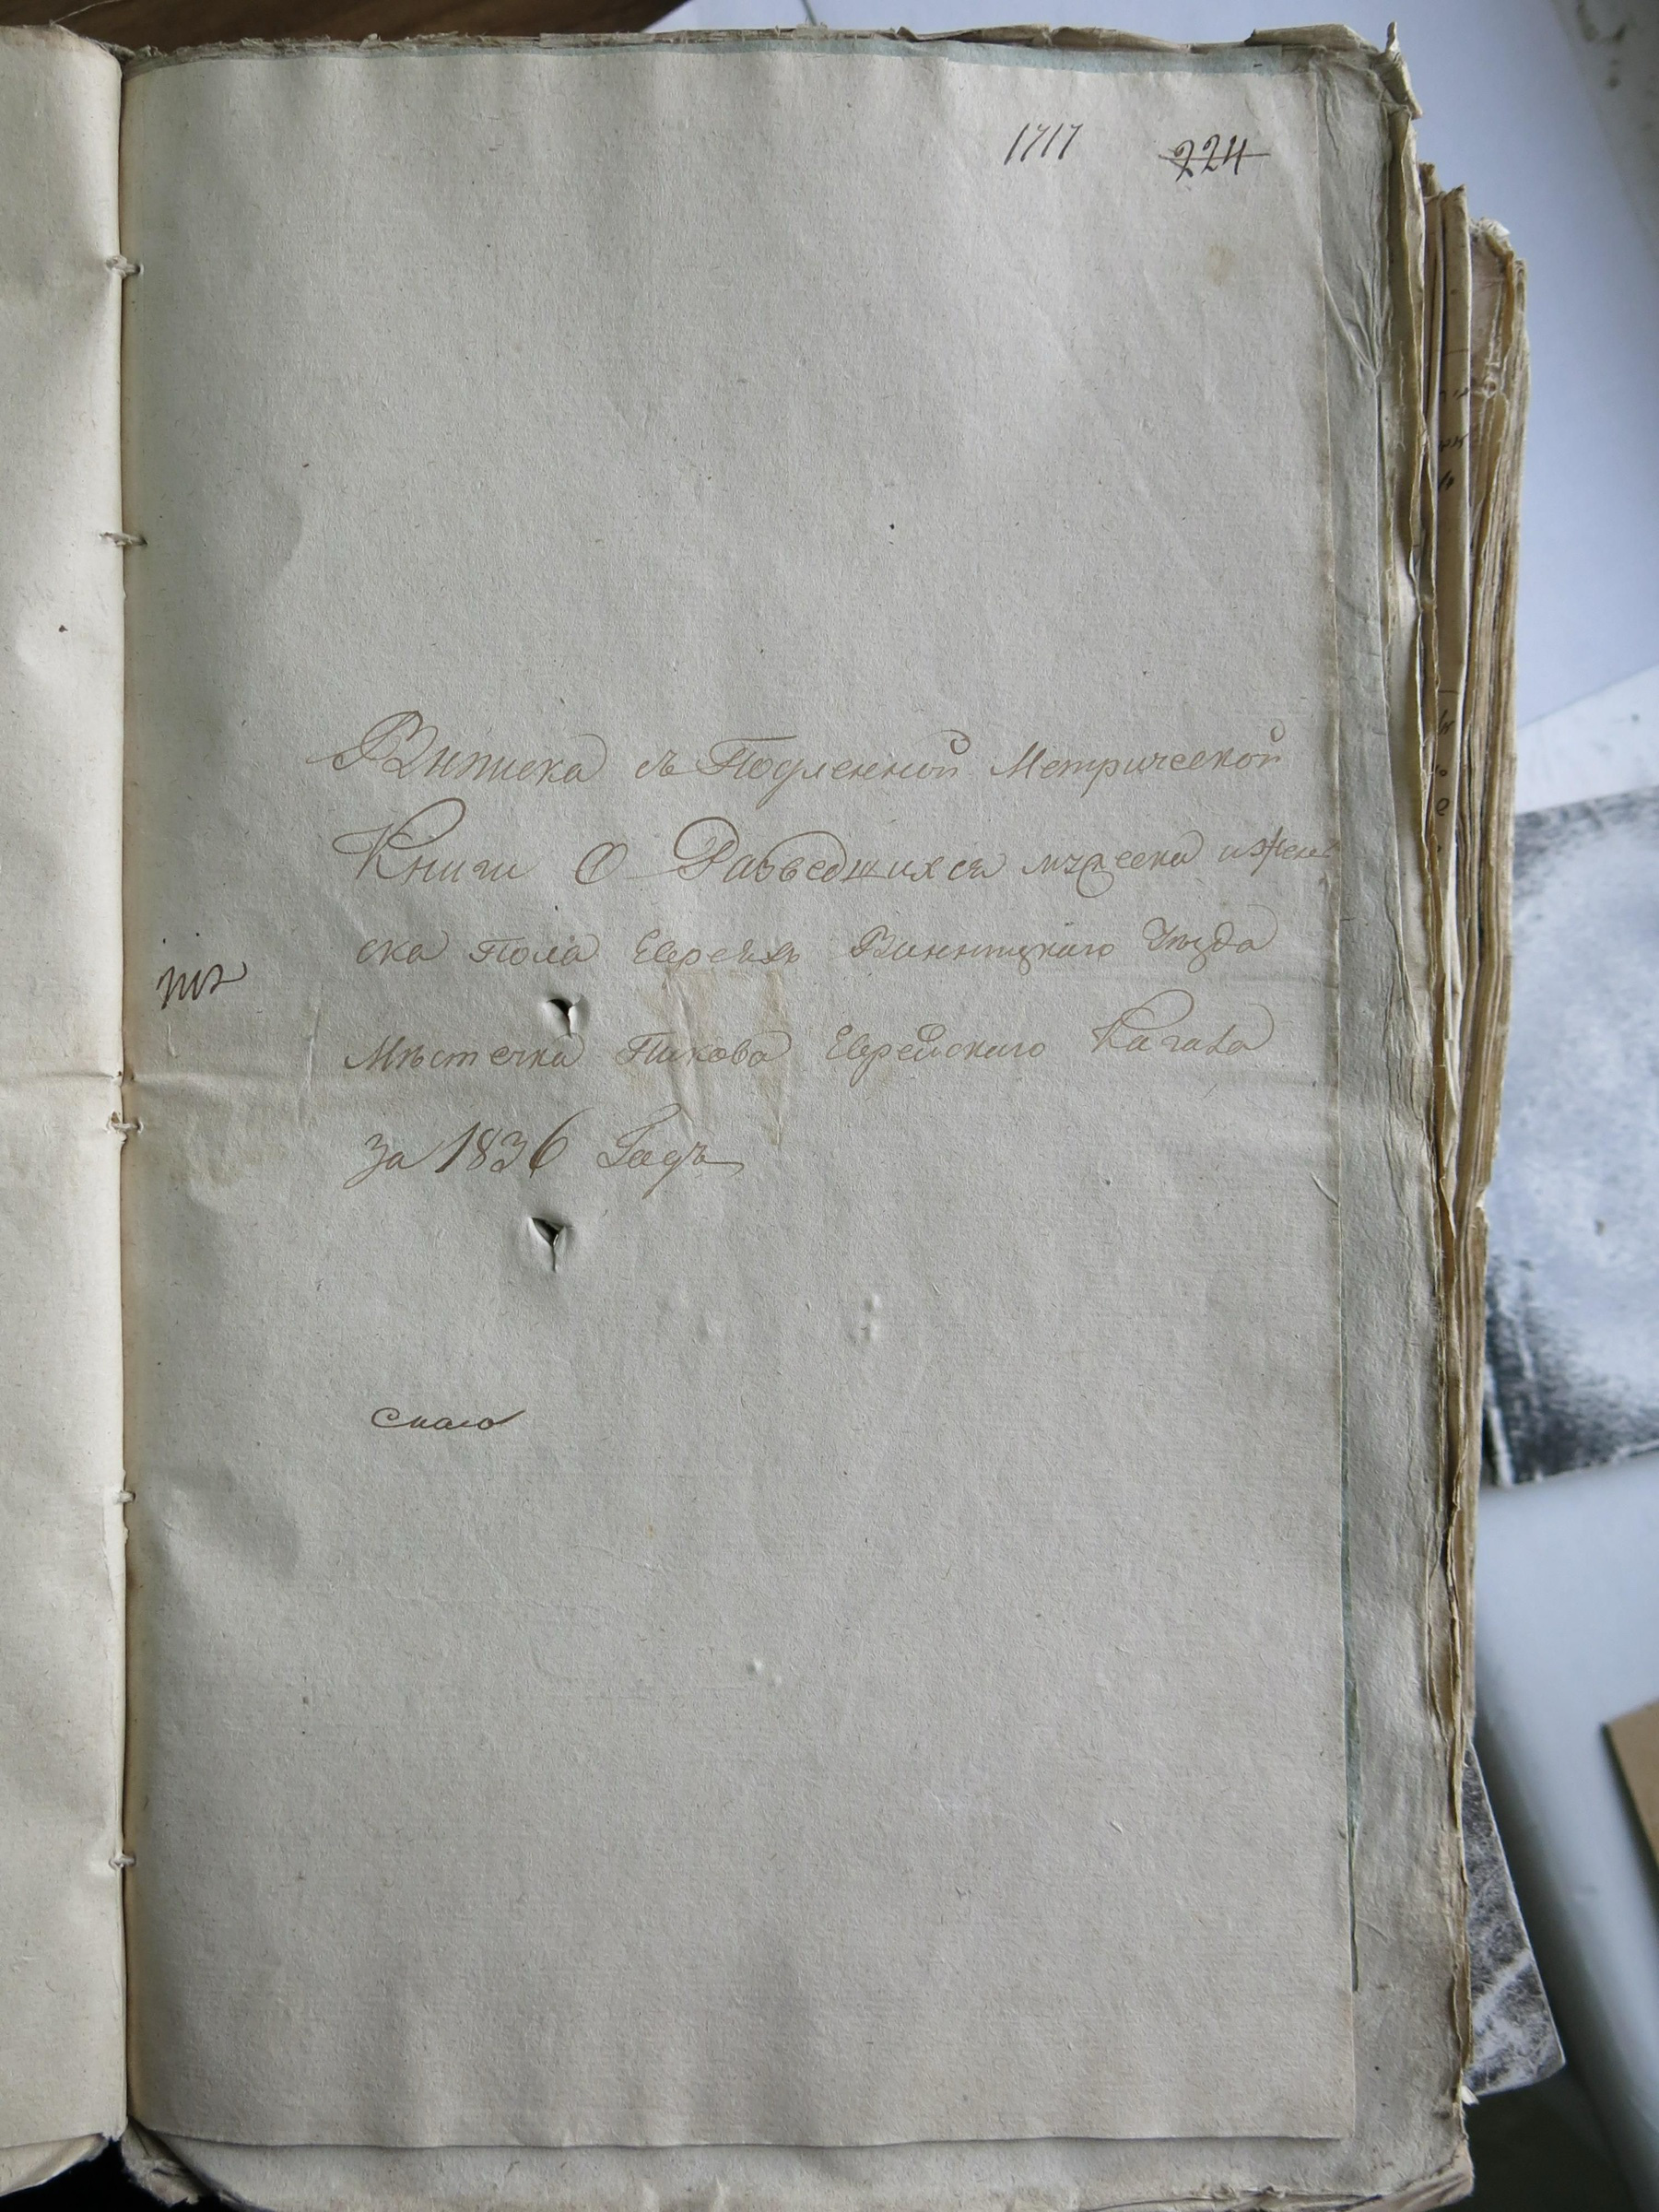 1717 224
Выписка съ Подленной Метрической
Книги О Разведшихся мужеска и жен
ска Пола Евреяхъ Винницкаго Уезда
Местечка Пикова Еврейскаго Кагала
за 1836 Годъ
скаго